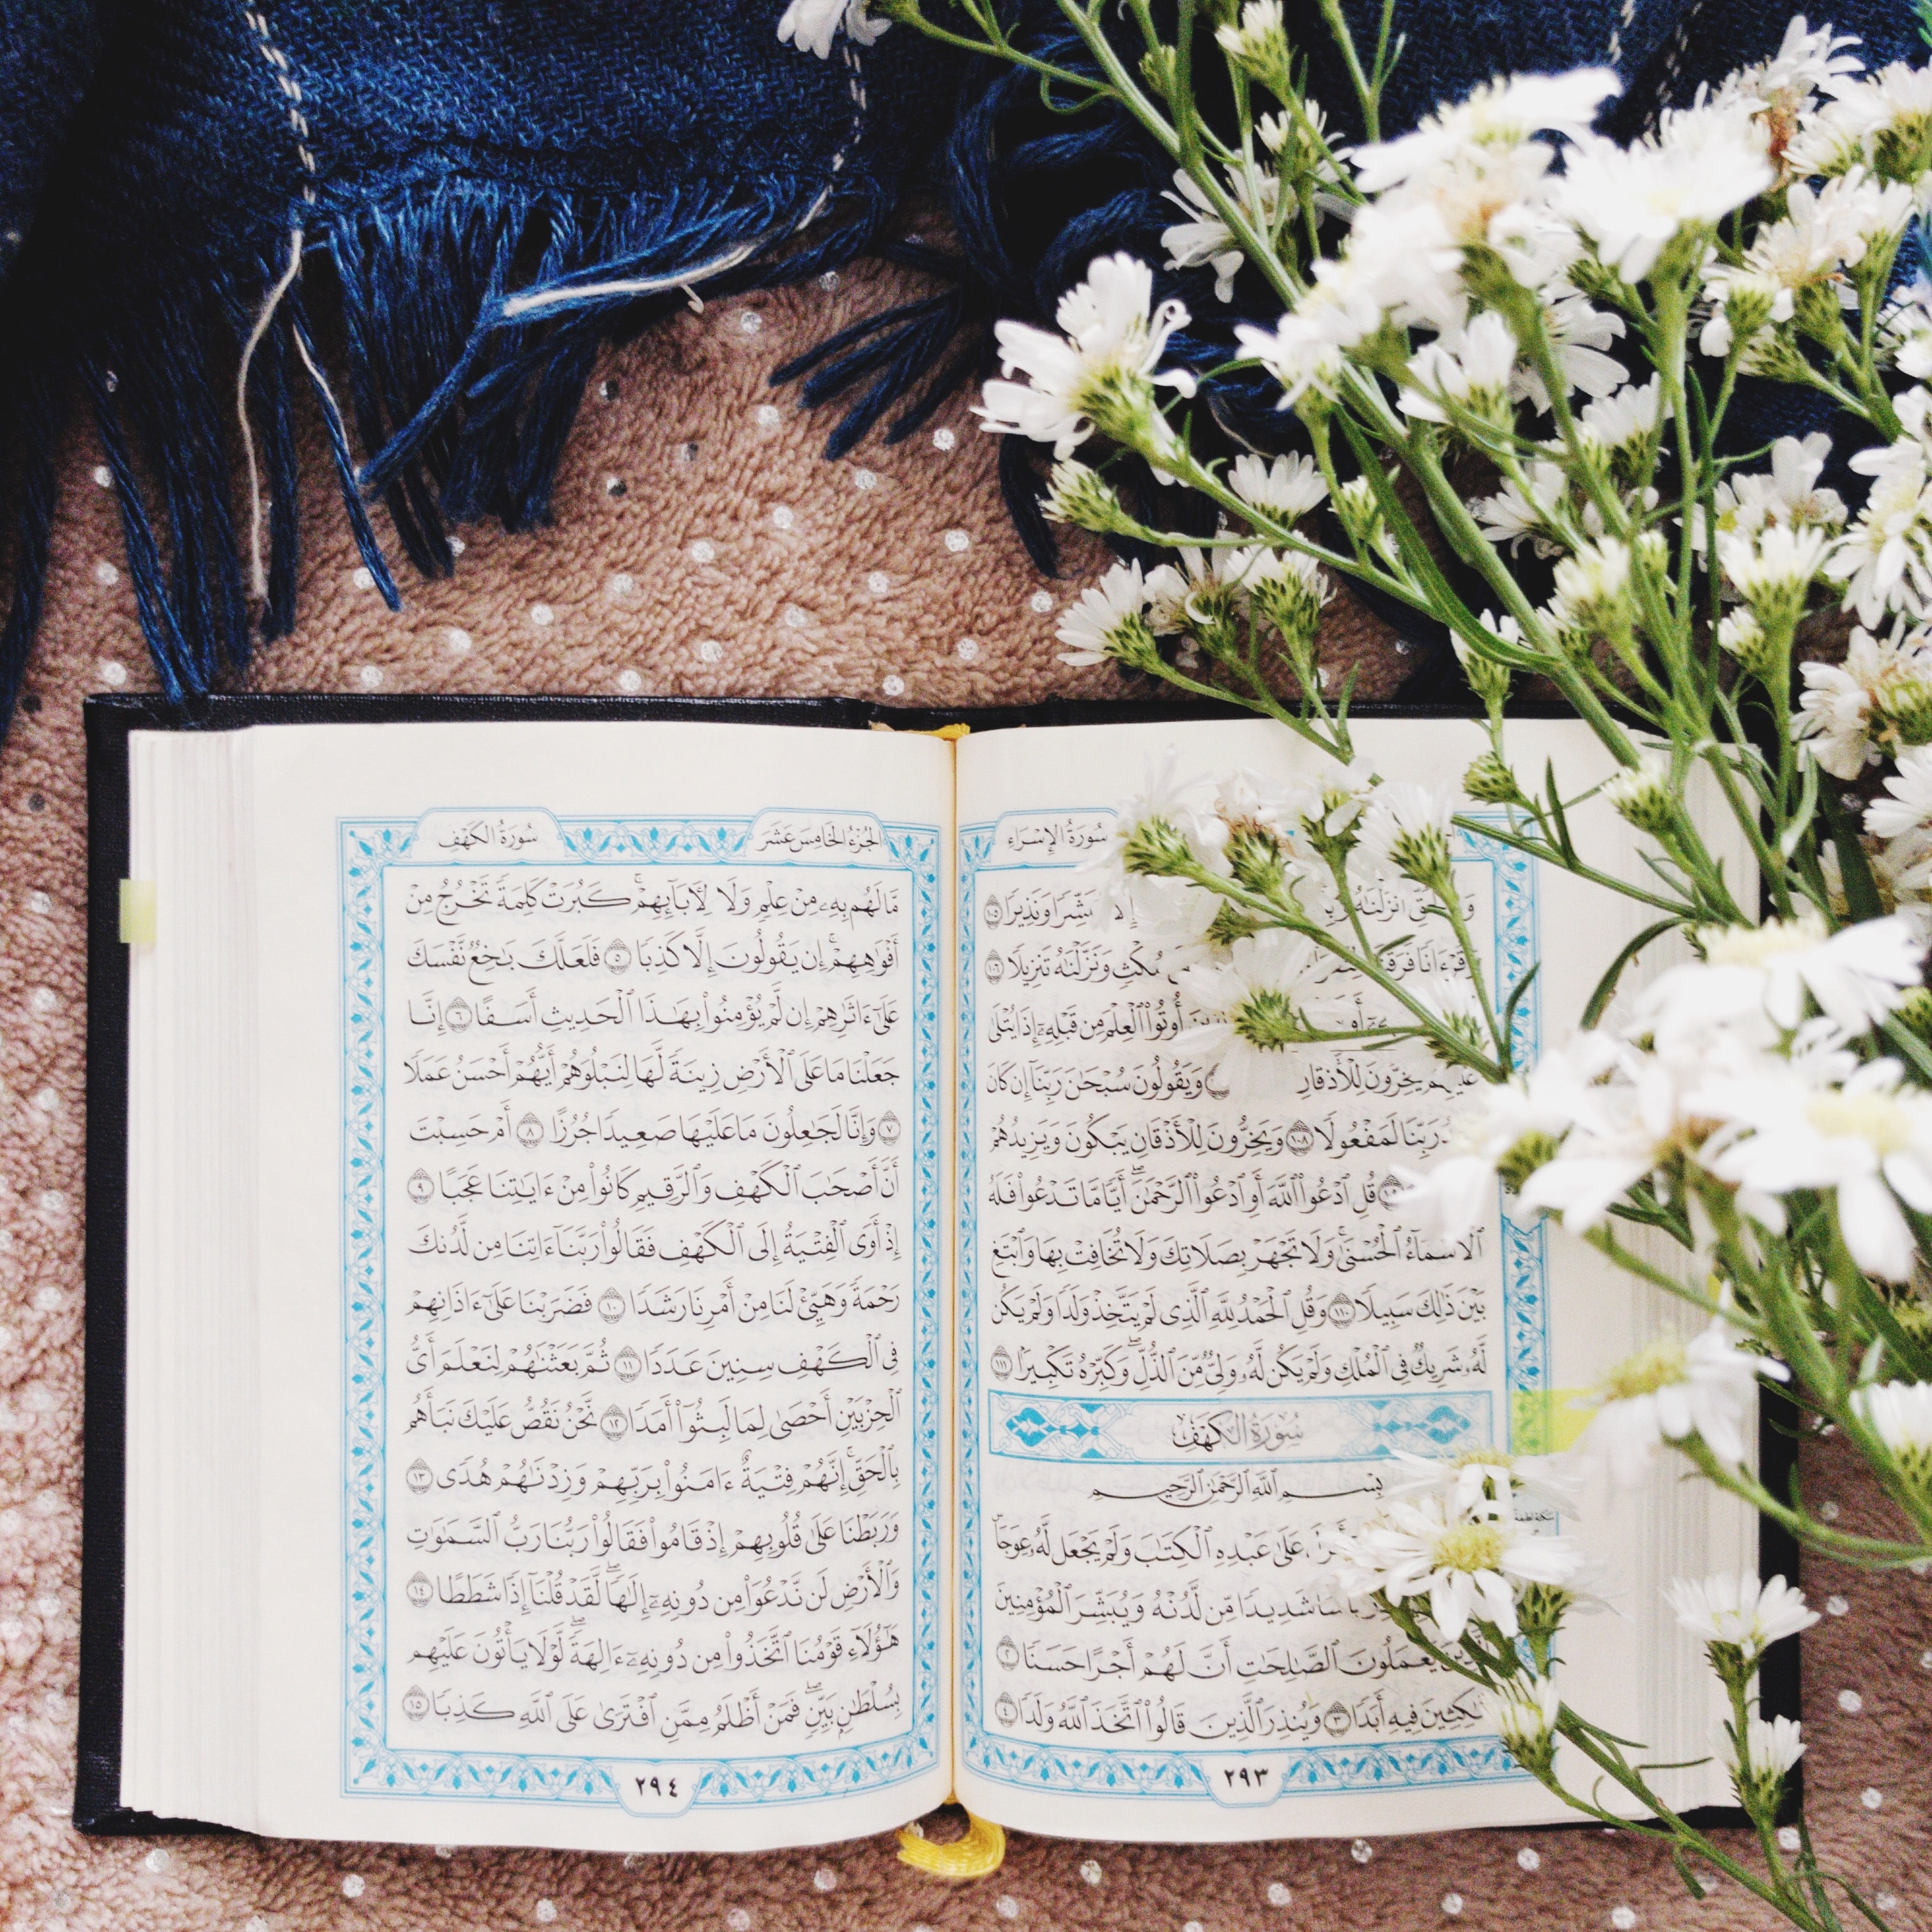 سُورَةُ الإِسْرَاءِ
أَنزَلْنَٰهُ إِلَّا وَنَذِيرًا ١٠٥
مُكْثٍ وَنَزَّلْنَٰهُ تَنزِيلًا ١٠٦
أُوتُوا۟ ٱلْعِلْمَ مِن قَبْلِهِۦٓ إِذَا يُتْلَىٰ
يَخِرُّونَ لِلْأَذْقَانِ وَيَقُولُونَ سُبْحَٰنَ رَبِّنَآ إِن كَانَ
رَبِّنَا لَمَفْعُولًا ١٠٨ وَيَخِرُّونَ لِلْأَذْقَانِ يَبْكُونَ وَيَزِيدُهُمْ
قُلِ ٱدْعُوا۟ ٱللَّهَ أَوِ ٱدْعُوا۟ ٱلرَّحْمَٰنَ ۖ أَيًّا مَّا تَدْعُوا۟ فَلَهُ
ٱلْأَسْمَآءُ ٱلْحُسْنَىٰ ۚ وَلَا تَجْهَرْ بِصَلَاتِكَ وَلَا تُخَافِتْ بِهَا وَٱبْتَغِ
بَيْنَ ذَٰلِكَ سَبِيلًا ١١٠ وَقُلِ ٱلْحَمْدُ لِلَّهِ ٱلَّذِى لَمْ يَتَّخِذْ وَلَدًا وَلَمْ يَكُن
لَّهُۥ شَرِيكٌ فِى ٱلْمُلْكِ وَلَمْ يَكُن لَّهُۥ وَلِىٌّ مِّنَ ٱلذُّلِّ ۖ وَكَبِّرْهُ تَكْبِيرًۢا ١١١
سُورَةُ الكَهْفِ
بِسْمِ ٱللَّهِ ٱلرَّحْمَٰنِ ٱلرَّحِيمِ
عَلَىٰ عَبْدِهِ ٱلْكِتَٰبَ وَلَمْ يَجْعَل لَّهُۥ عِوَجَا ۜ
شَدِيدًا مِّن لَّدُنْهُ وَيُبَشِّرَ ٱلْمُؤْمِنِينَ
يَعْمَلُونَ ٱلصَّٰلِحَٰتِ أَنَّ لَهُمْ أَجْرًا حَسَنًا ٢
مَّٰكِثِينَ فِيهِ أَبَدًا ٣ وَيُنذِرَ ٱلَّذِينَ قَالُوا۟ ٱتَّخَذَ ٱللَّهُ وَلَدًا ٤
٢٩٣
الجُزْءُ الخَامِسَ عَشَرَ
سُورَةُ الكَهْفِ
مَّا لَهُم بِهِۦ مِنْ عِلْمٍ وَلَا لِءَابَآئِهِمْ ۚ كَبُرَتْ كَلِمَةً تَخْرُجُ مِنْ
أَفْوَٰهِهِمْ ۚ إِن يَقُولُونَ إِلَّا كَذِبًا ٥ فَلَعَلَّكَ بَٰخِعٌ نَّفْسَكَ
عَلَىٰٓ ءَاثَٰرِهِمْ إِن لَّمْ يُؤْمِنُوا۟ بِهَٰذَا ٱلْحَدِيثِ أَسَفًا ٦ إِنَّا
جَعَلْنَا مَا عَلَى ٱلْأَرْضِ زِينَةً لَّهَا لِنَبْلُوَهُمْ أَيُّهُمْ أَحْسَنُ عَمَلًا
٧ وَإِنَّا لَجَٰعِلُونَ مَا عَلَيْهَا صَعِيدًا جُرُزًا ٨ أَمْ حَسِبْتَ
أَنَّ أَصْحَٰبَ ٱلْكَهْفِ وَٱلرَّقِيمِ كَانُوا۟ مِنْ ءَايَٰتِنَا عَجَبًا ٩
إِذْ أَوَى ٱلْفِتْيَةُ إِلَى ٱلْكَهْفِ فَقَالُوا۟ رَبَّنَآ ءَاتِنَا مِن لَّدُنكَ
رَحْمَةً وَهَيِّئْ لَنَا مِنْ أَمْرِنَا رَشَدًا ١٠ فَضَرَبْنَا عَلَىٰٓ ءَاذَانِهِمْ
فِى ٱلْكَهْفِ سِنِينَ عَدَدًا ١١ ثُمَّ بَعَثْنَٰهُمْ لِنَعْلَمَ أَىُّ
ٱلْحِزْبَيْنِ أَحْصَىٰ لِمَا لَبِثُوٓا۟ أَمَدًا ١٢ نَّحْنُ نَقُصُّ عَلَيْكَ نَبَأَهُم
بِٱلْحَقِّ ۚ إِنَّهُمْ فِتْيَةٌ ءَامَنُوا۟ بِرَبِّهِمْ وَزِدْنَٰهُمْ هُدًى ١٣
وَرَبَطْنَا عَلَىٰ قُلُوبِهِمْ إِذْ قَامُوا۟ فَقَالُوا۟ رَبُّنَا رَبُّ ٱلسَّمَٰوَٰتِ
وَٱلْأَرْضِ لَن نَّدْعُوَا۟ مِن دُونِهِۦٓ إِلَٰهًا ۖ لَّقَدْ قُلْنَآ إِذًا شَطَطًا ١٤
هَٰٓؤُلَآءِ قَوْمُنَا ٱتَّخَذُوا۟ مِن دُونِهِۦٓ ءَالِهَةً ۖ لَّوْلَا يَأْتُونَ عَلَيْهِم
بِسُلْطَٰنٍۭ بَيِّنٍ ۖ فَمَنْ أَظْلَمُ مِمَّنِ ٱفْتَرَىٰ عَلَى ٱللَّهِ كَذِبًا ١٥
٢٩٤